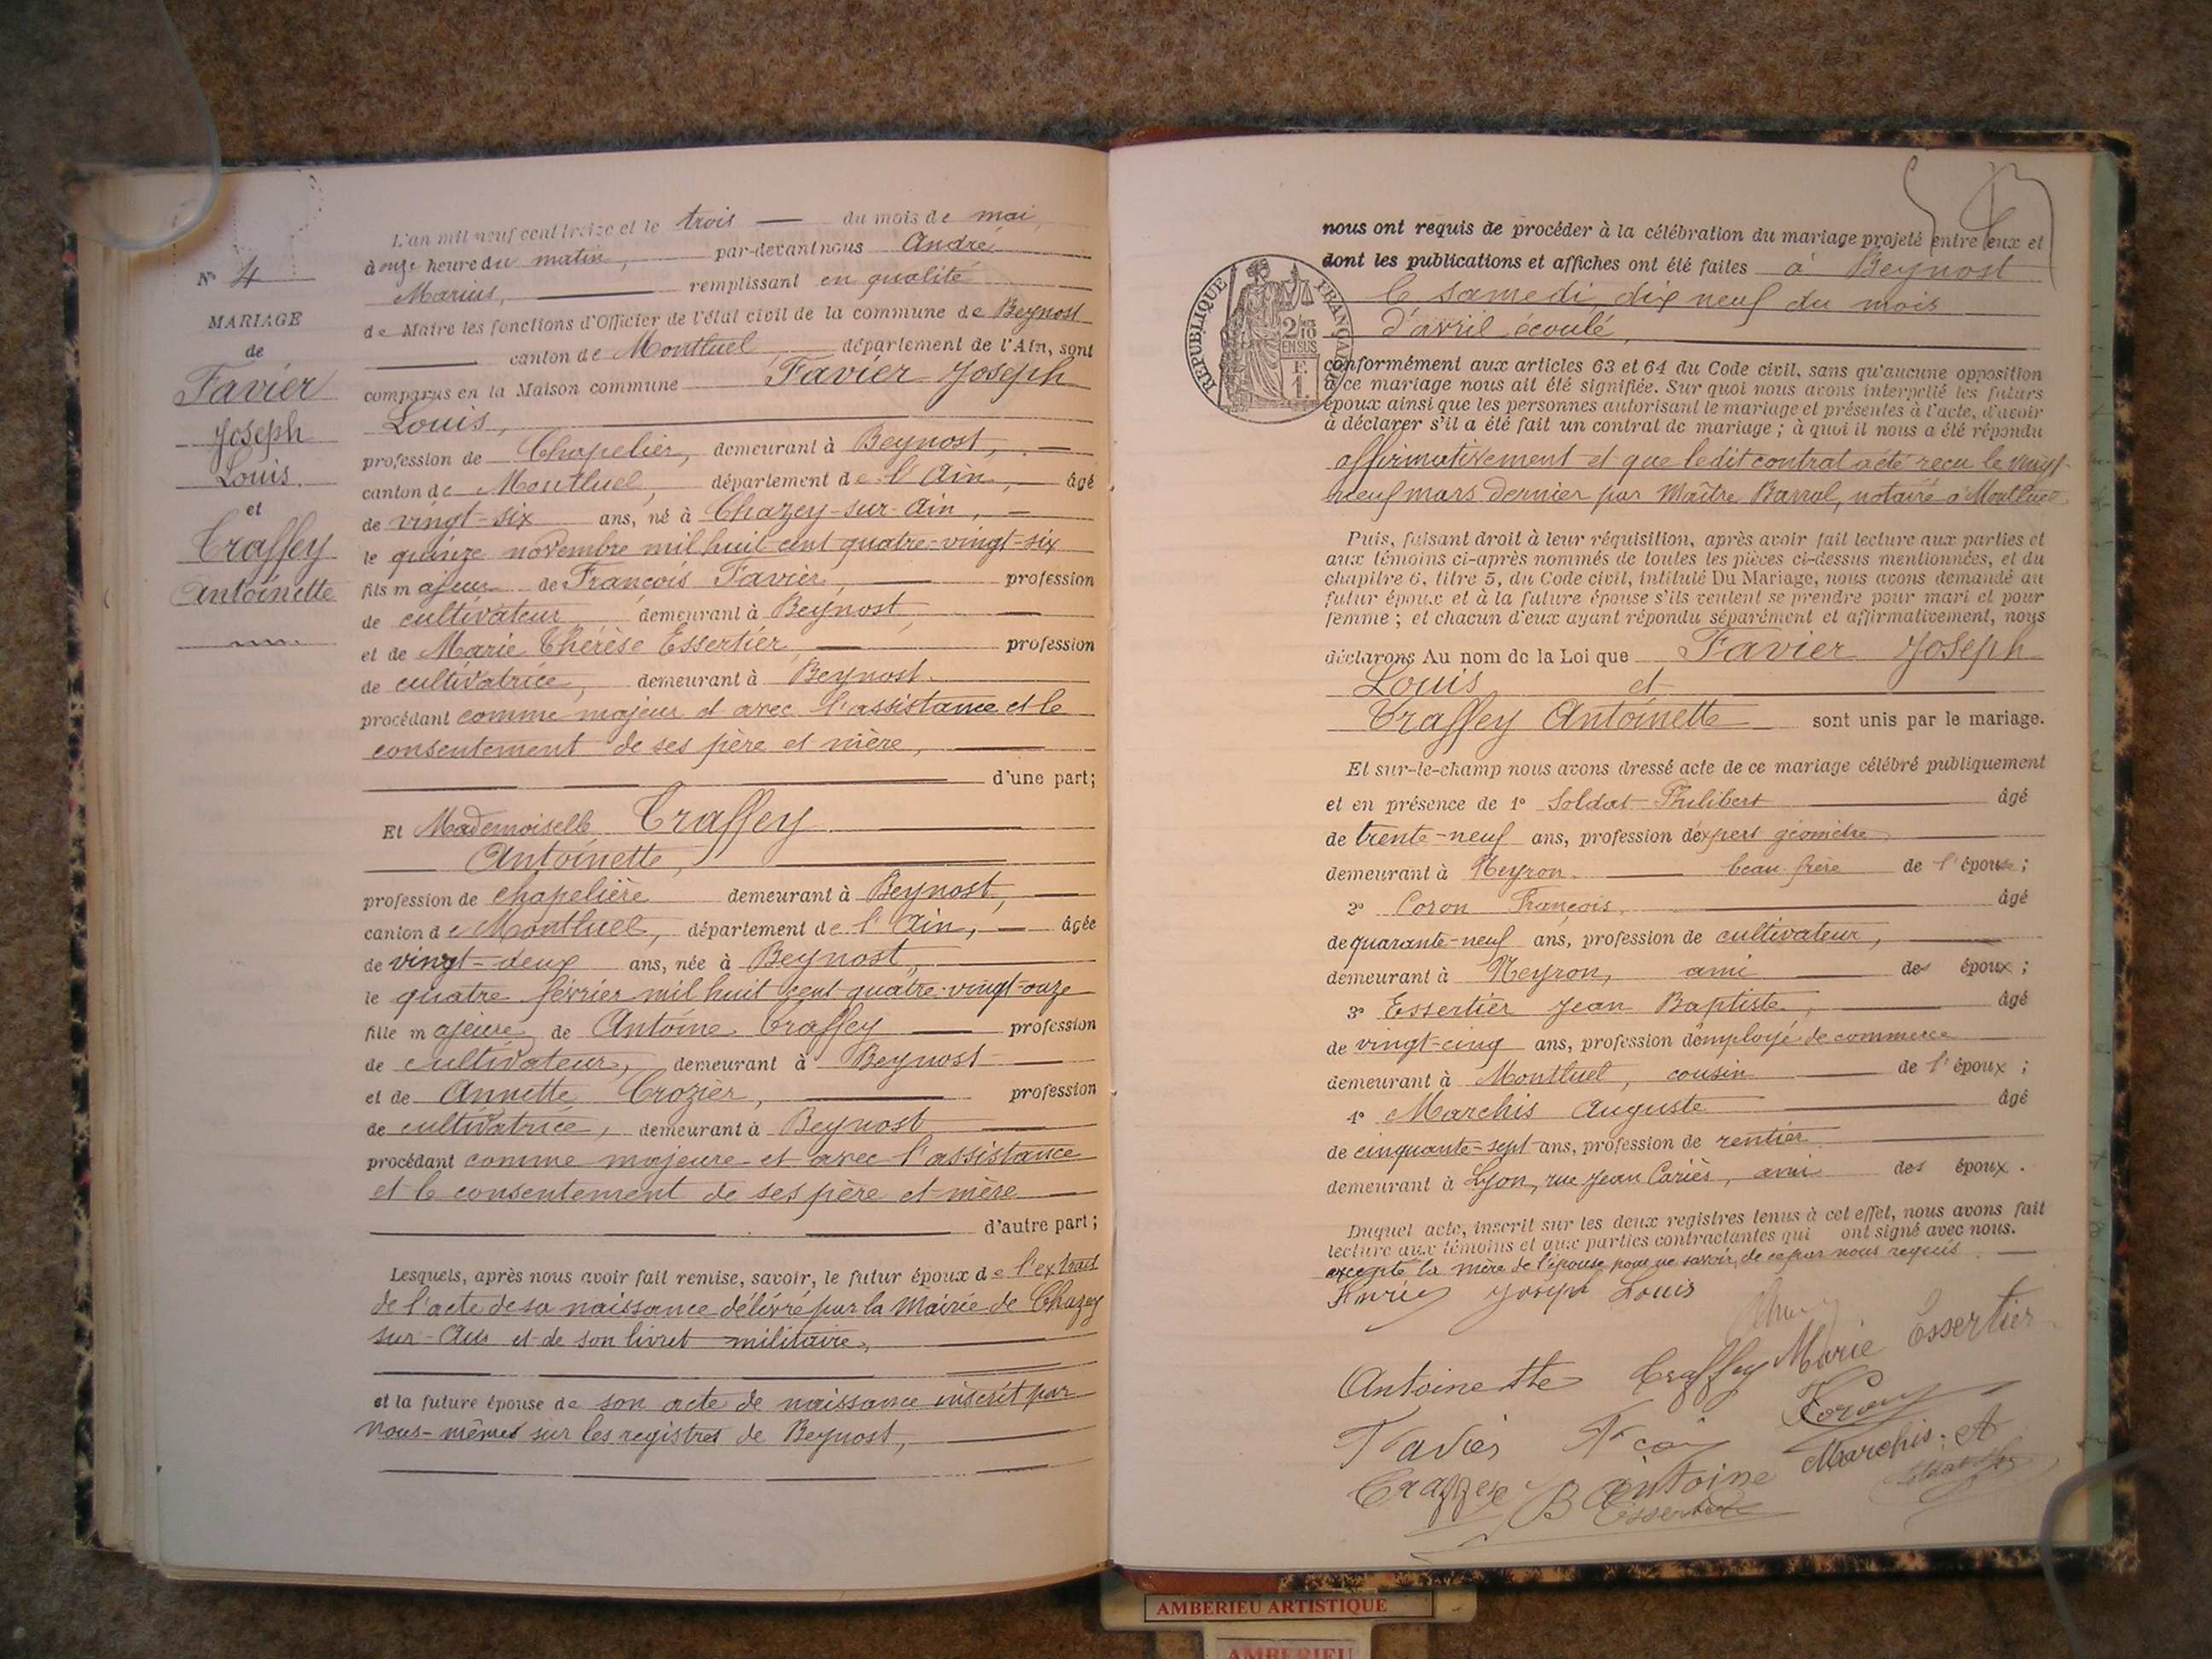 L'an mil neuf cent treize et le trois du mois de mai,
à onze heure du matin, par-devant nous André
Marius, remplissant en qualité
de Maire les fonctions d'Officier de l'état civil de la commune de Beynost
canton de Montluel département de l'Ain, sont
comparus en la Maison commune Favier Joseph
Louis,
profession de Chapelier, demeurant à Beynost,
canton de Montluel, département de l'Ain, âgé
de vingt-six ans, né à Chazey-sur-Ain,
le quinze novembre mil huit cent quatre-vingt-six
fils majeur de François Favier, profession
de cultivateur demeurant à Beynost
et de Marie Thérèse Essertier, profession
de cultivatrice, demeurant à Beynost.
procédant comme majeur et avec l'assistance et le
consentement de ses père et mère,
d'une part;
Et Mademoiselle Traffey
Antoinette,
profession de chapelière demeurant à Beynost,
canton de Montluel, département de l'Ain, âgée
de vingt-deux ans, née à Beynost,
le quatre février mil huit cent quatre-vingt-onze
fille majeure de Antoine Traffey profession
de cultivateur, demeurant à Beynost
et de Annette Crozier, profession
de cultivatrice, demeurant à Beynost
procédant comme majeure et avec l'assistance
et le consentement de ses père et mère
d'autre part;
Lesquels, après nous avoir fait remise, savoir, le futur époux de l'extrait
de l'acte de sa naissance délivré par la Mairie de Chazey
sur-Ain et de son livret militaire,
et la future épouse de son acte de naissance inscrit par
nous-mêmes sur les registres de Beynost,
N° 4
MARIAGE
de
Favier
Joseph
Louis.
et
Traffey
Antoinette
nous ont requis de procéder à la célébration du mariage projeté entre eux et
dont les publications et affiches ont été faites à Beynost
le samedi dix neuf du mois
d'avril écoulé,
RÉPUBLIQUE FRANÇAISE
2/10
EN SUS
F.
1.
conformément aux articles 63 et 64 du Code civil, sans qu'aucune opposition
à ce mariage nous ait été signifiée. Sur quoi nous avons interpellé les futurs
époux ainsi que les personnes autorisant le mariage et présentes à l'acte, d'avoir
à déclarer s'il a été fait un contrat de mariage; à quoi il nous a été répondu
affirmativement et que ledit contrat a été reçu le vingt-
neuf mars dernier par Maître Barral, notaire à Montluel
Puis, faisant droit à leur réquisition, après avoir fait lecture aux parties et
aux témoins ci-après nommés de toutes les pièces ci-dessus mentionnées, et du
chapitre 6, titre 5, du Code civil, intitulé Du Mariage, nous avons demandé au
futur époux et à la future épouse s'ils veulent se prendre pour mari et pour
femme; et chacun d'eux ayant répondu séparément et affirmativement, nous
déclarons Au nom de la Loi que Favier Joseph
Louis et
Traffey Antoinette sont unis par le mariage.
Et sur-le-champ nous avons dressé acte de ce mariage célébré publiquement
et en présence de 1° Soldat Philibert âgé
de trente-neuf ans, profession d'expert géomètre
demeurant à Neyron. beau-frère de l'épouse;
2° Coron François, âgé
de quarante-neuf ans, profession de cultivateur,
demeurant à Neyron, ami des époux;
3° Essertier Jean Baptiste, âgé
de vingt-cinq ans, profession d'employé de commerce
demeurant à Montluel, cousin de l'époux;
4° Marchis Auguste âgé
de cinquante-sept ans, profession de rentier
demeurant à Lyon, rue Jean Cariès, ami des époux.
Duquel acte, inscrit sur les deux registres tenus à cet effet, nous avons fait
lecture aux témoins et aux parties contractantes qui ont signé avec nous.
excepté la mère de l'épouse pour ne savoir, de ce par nous requis.
Favier Joseph Louis
Antoinette Traffey Marie Essertier
Favier Fçois Coron
Marchis. A
Traffey Antoine
B Essertier
AMBERIEU ARTISTIQUE
AMBERIEU